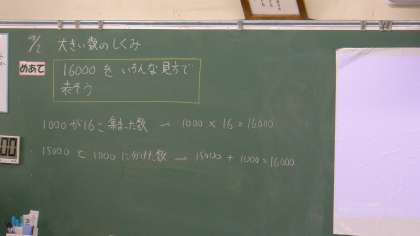 大きい数のしくみ
めあて
16000を いろんな見方で
表そう
1000が16こ集まった数 → 1000×16=16000
15000と1000に分けた数 → 15000+1000=16000
00